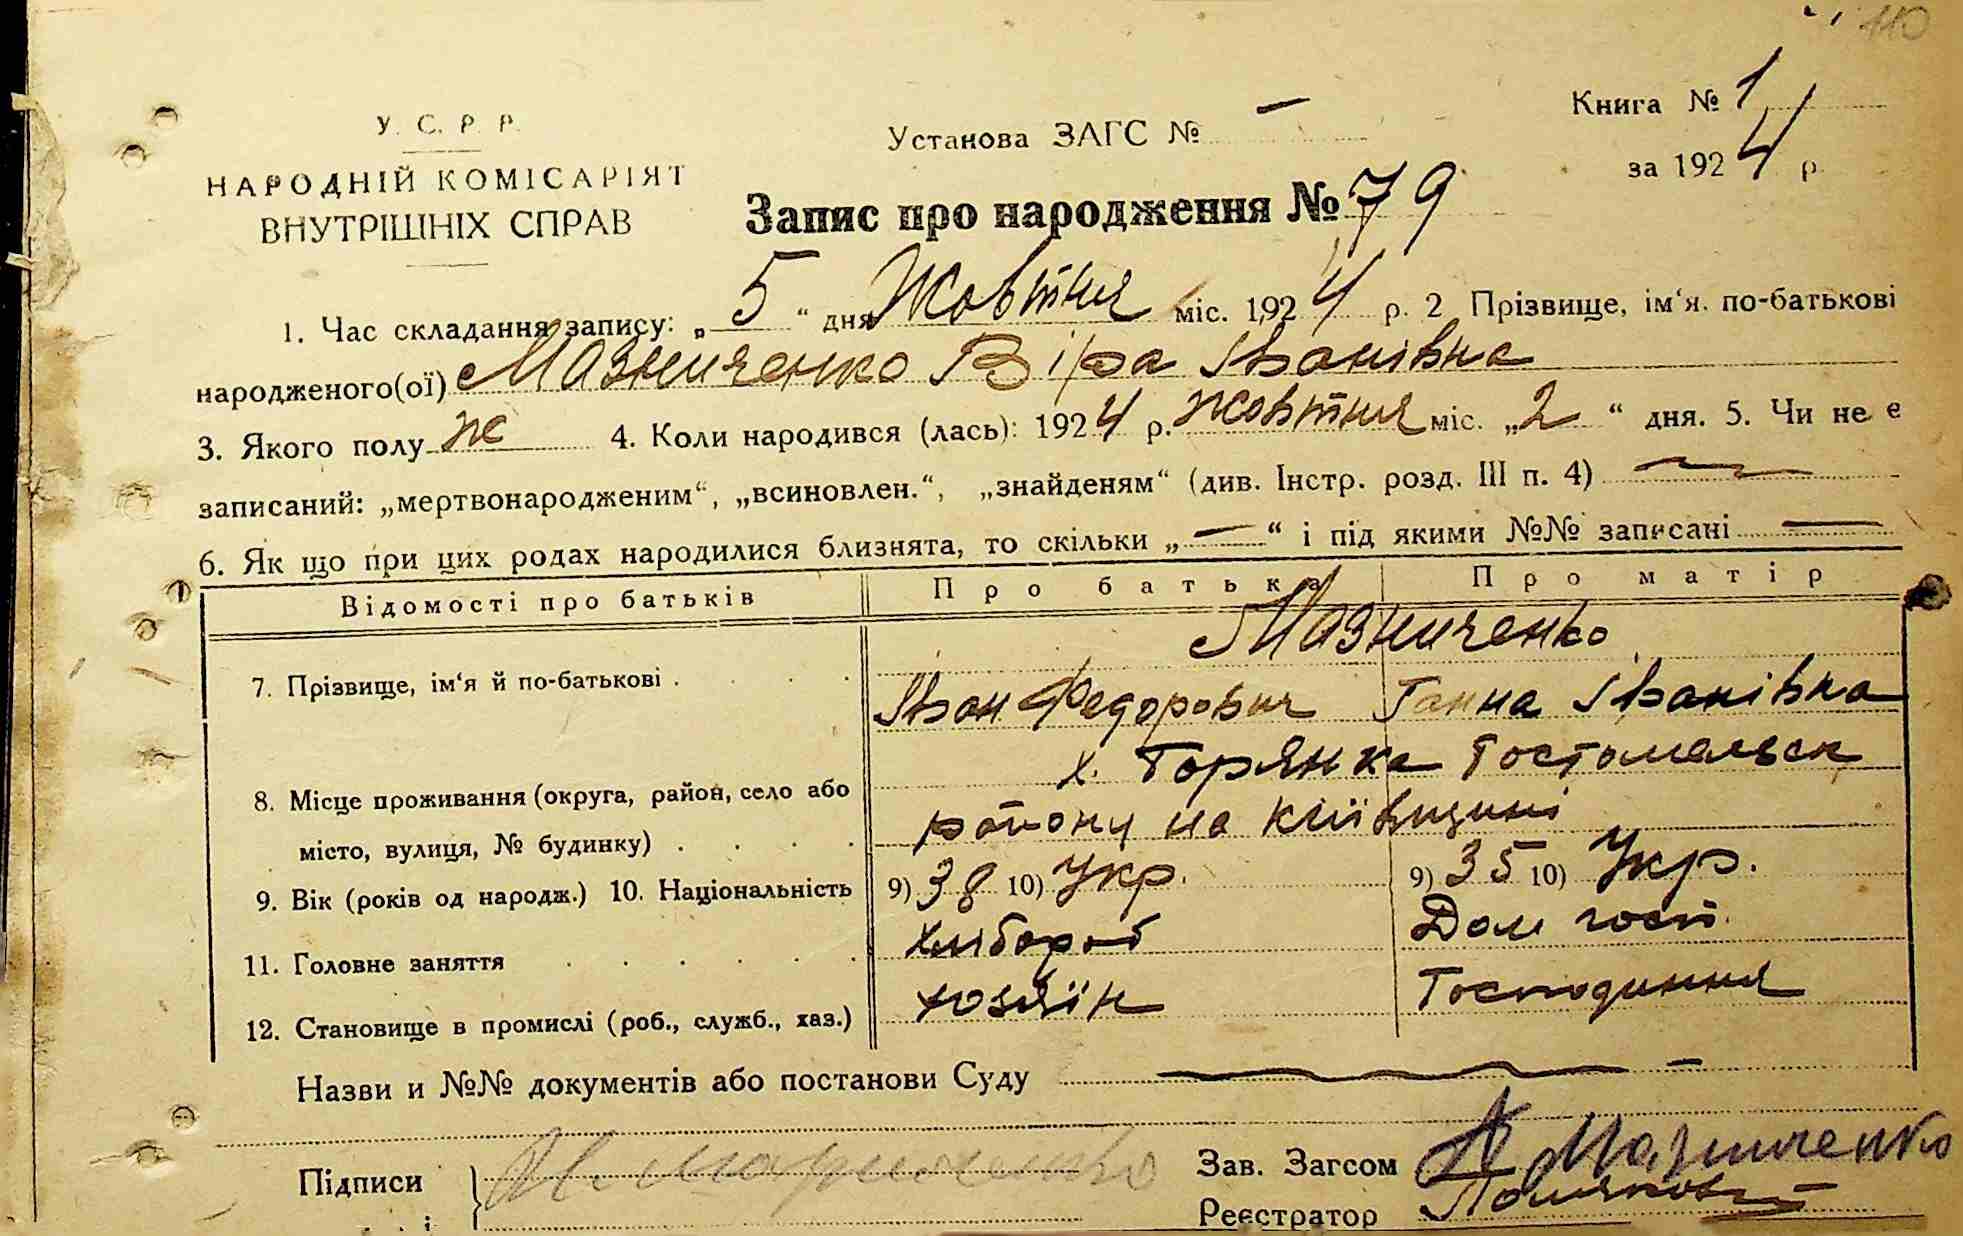 110
У. С. Р. Р.
НАРОДНІЙ КОМІСАРІЯТ
ВНУТРІШНІХ СПРАВ
Установа ЗАГС № —
Книга № 1
за 1924 р.
Запис про народження № 79
1. Час складання запису: „ 5 “ дня Жовтня міс. 1924 р. 2 Прізвище, ім‘я. по-батькові
народженого(ої) Мазниченко Віра Іванівна
3. Якого полу ж 4. Коли народився (лась): 1924 р. жовтня міс. „ 2 “ дня. 5. Чи не є
записаний: „мертвонародженим“, „всиновлен.“, „знайденям“ (див. Інстр. розд. III п. 4) —
6. Як що при цих родах народилися близнята, то скільки „ — “ і під якими №№ записані —
Відомості про батьків Про батька Про матір
Мазниченко
7. Прізвище, ім‘я й по-батькові . . . . Іван Федорович Ганна Іванівна
х. Горянка Гостомельск
8. Місце проживання (округа, район, село або
району на Київщині
місто, вулиця, № будинку) . . . .
9. Вік (років од народж.) 10. Національність 9) 38 10) Укр. 9) 35 10) Укр.
11. Головне заняття . . . . . . Хлібороб Дом госп.
12. Становище в промислі (роб., служб., хаз.) хозяїн Господиння
Назви и №№ документів або постанови Суду —
Підписи Мазниченко Зав. Загсом Мазниченко
Реєстратор